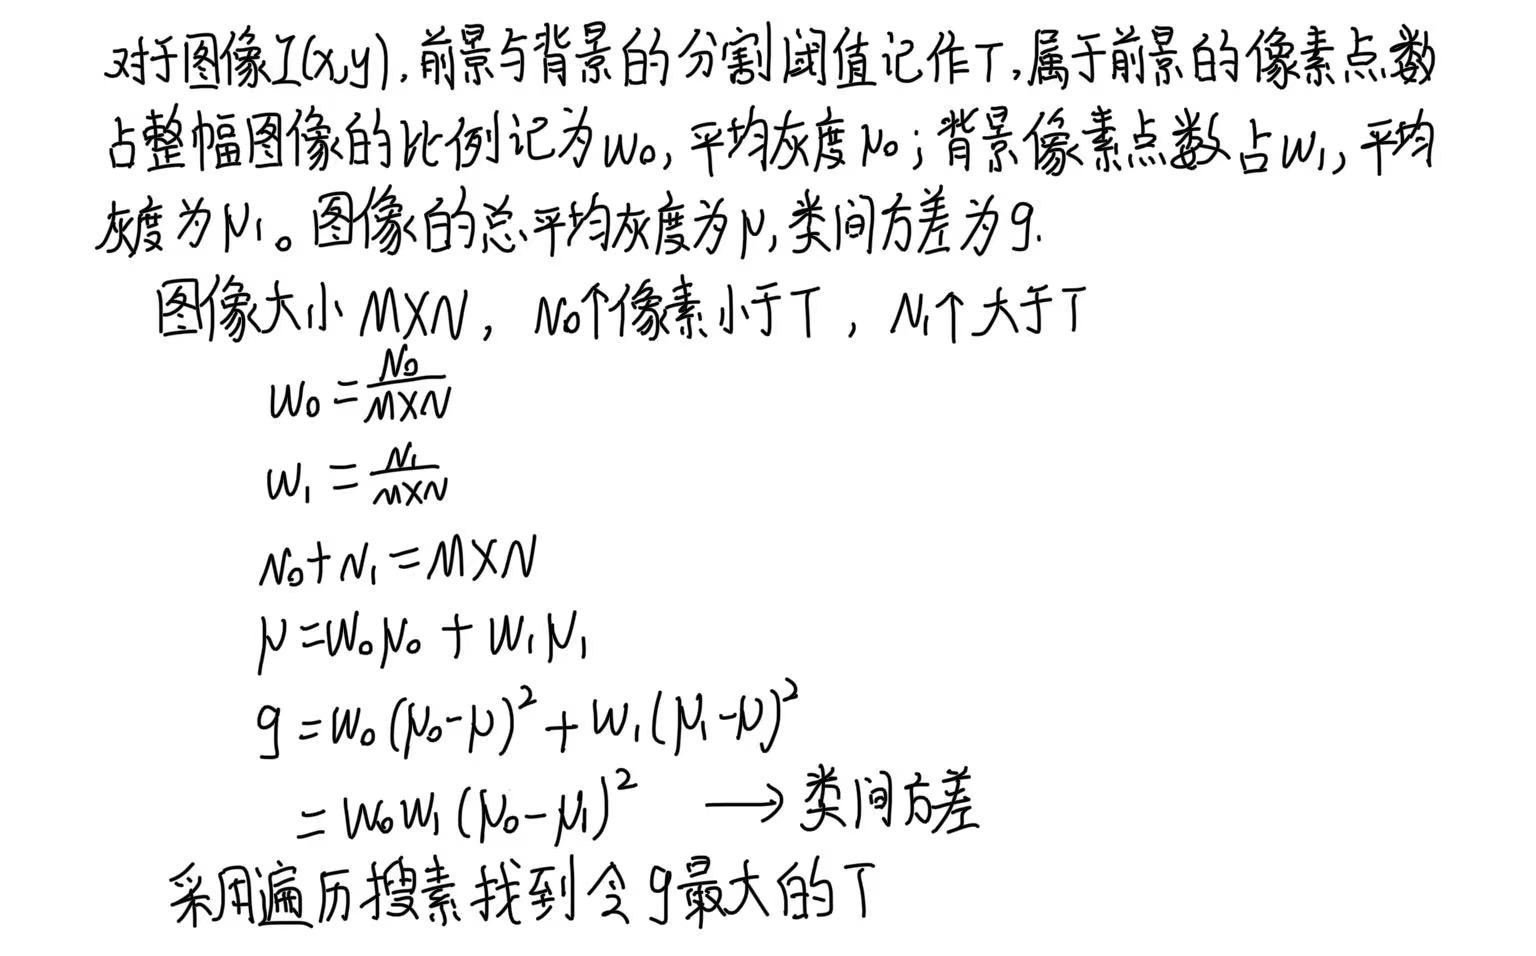 对于图像I(x,y),前景与背景的分割阈值记作T,属于前景的像素点数
占整幅图像的比例记为w₀,平均灰度μ₀;背景像素点数占w₁,平均
灰度为μ₁。图像的总平均灰度为μ,类间方差为g.
图像大小M×N, N₀个像素小于T, N₁个大于T
w₀=N₀/(M×N)
w₁=N₁/(M×N)
N₀+N₁=M×N
μ=w₀μ₀+w₁μ₁
g=w₀(μ₀-μ)²+w₁(μ₁-μ)²
=w₀w₁(μ₀-μ₁)² → 类间方差
采用遍历搜素找到令g最大的T